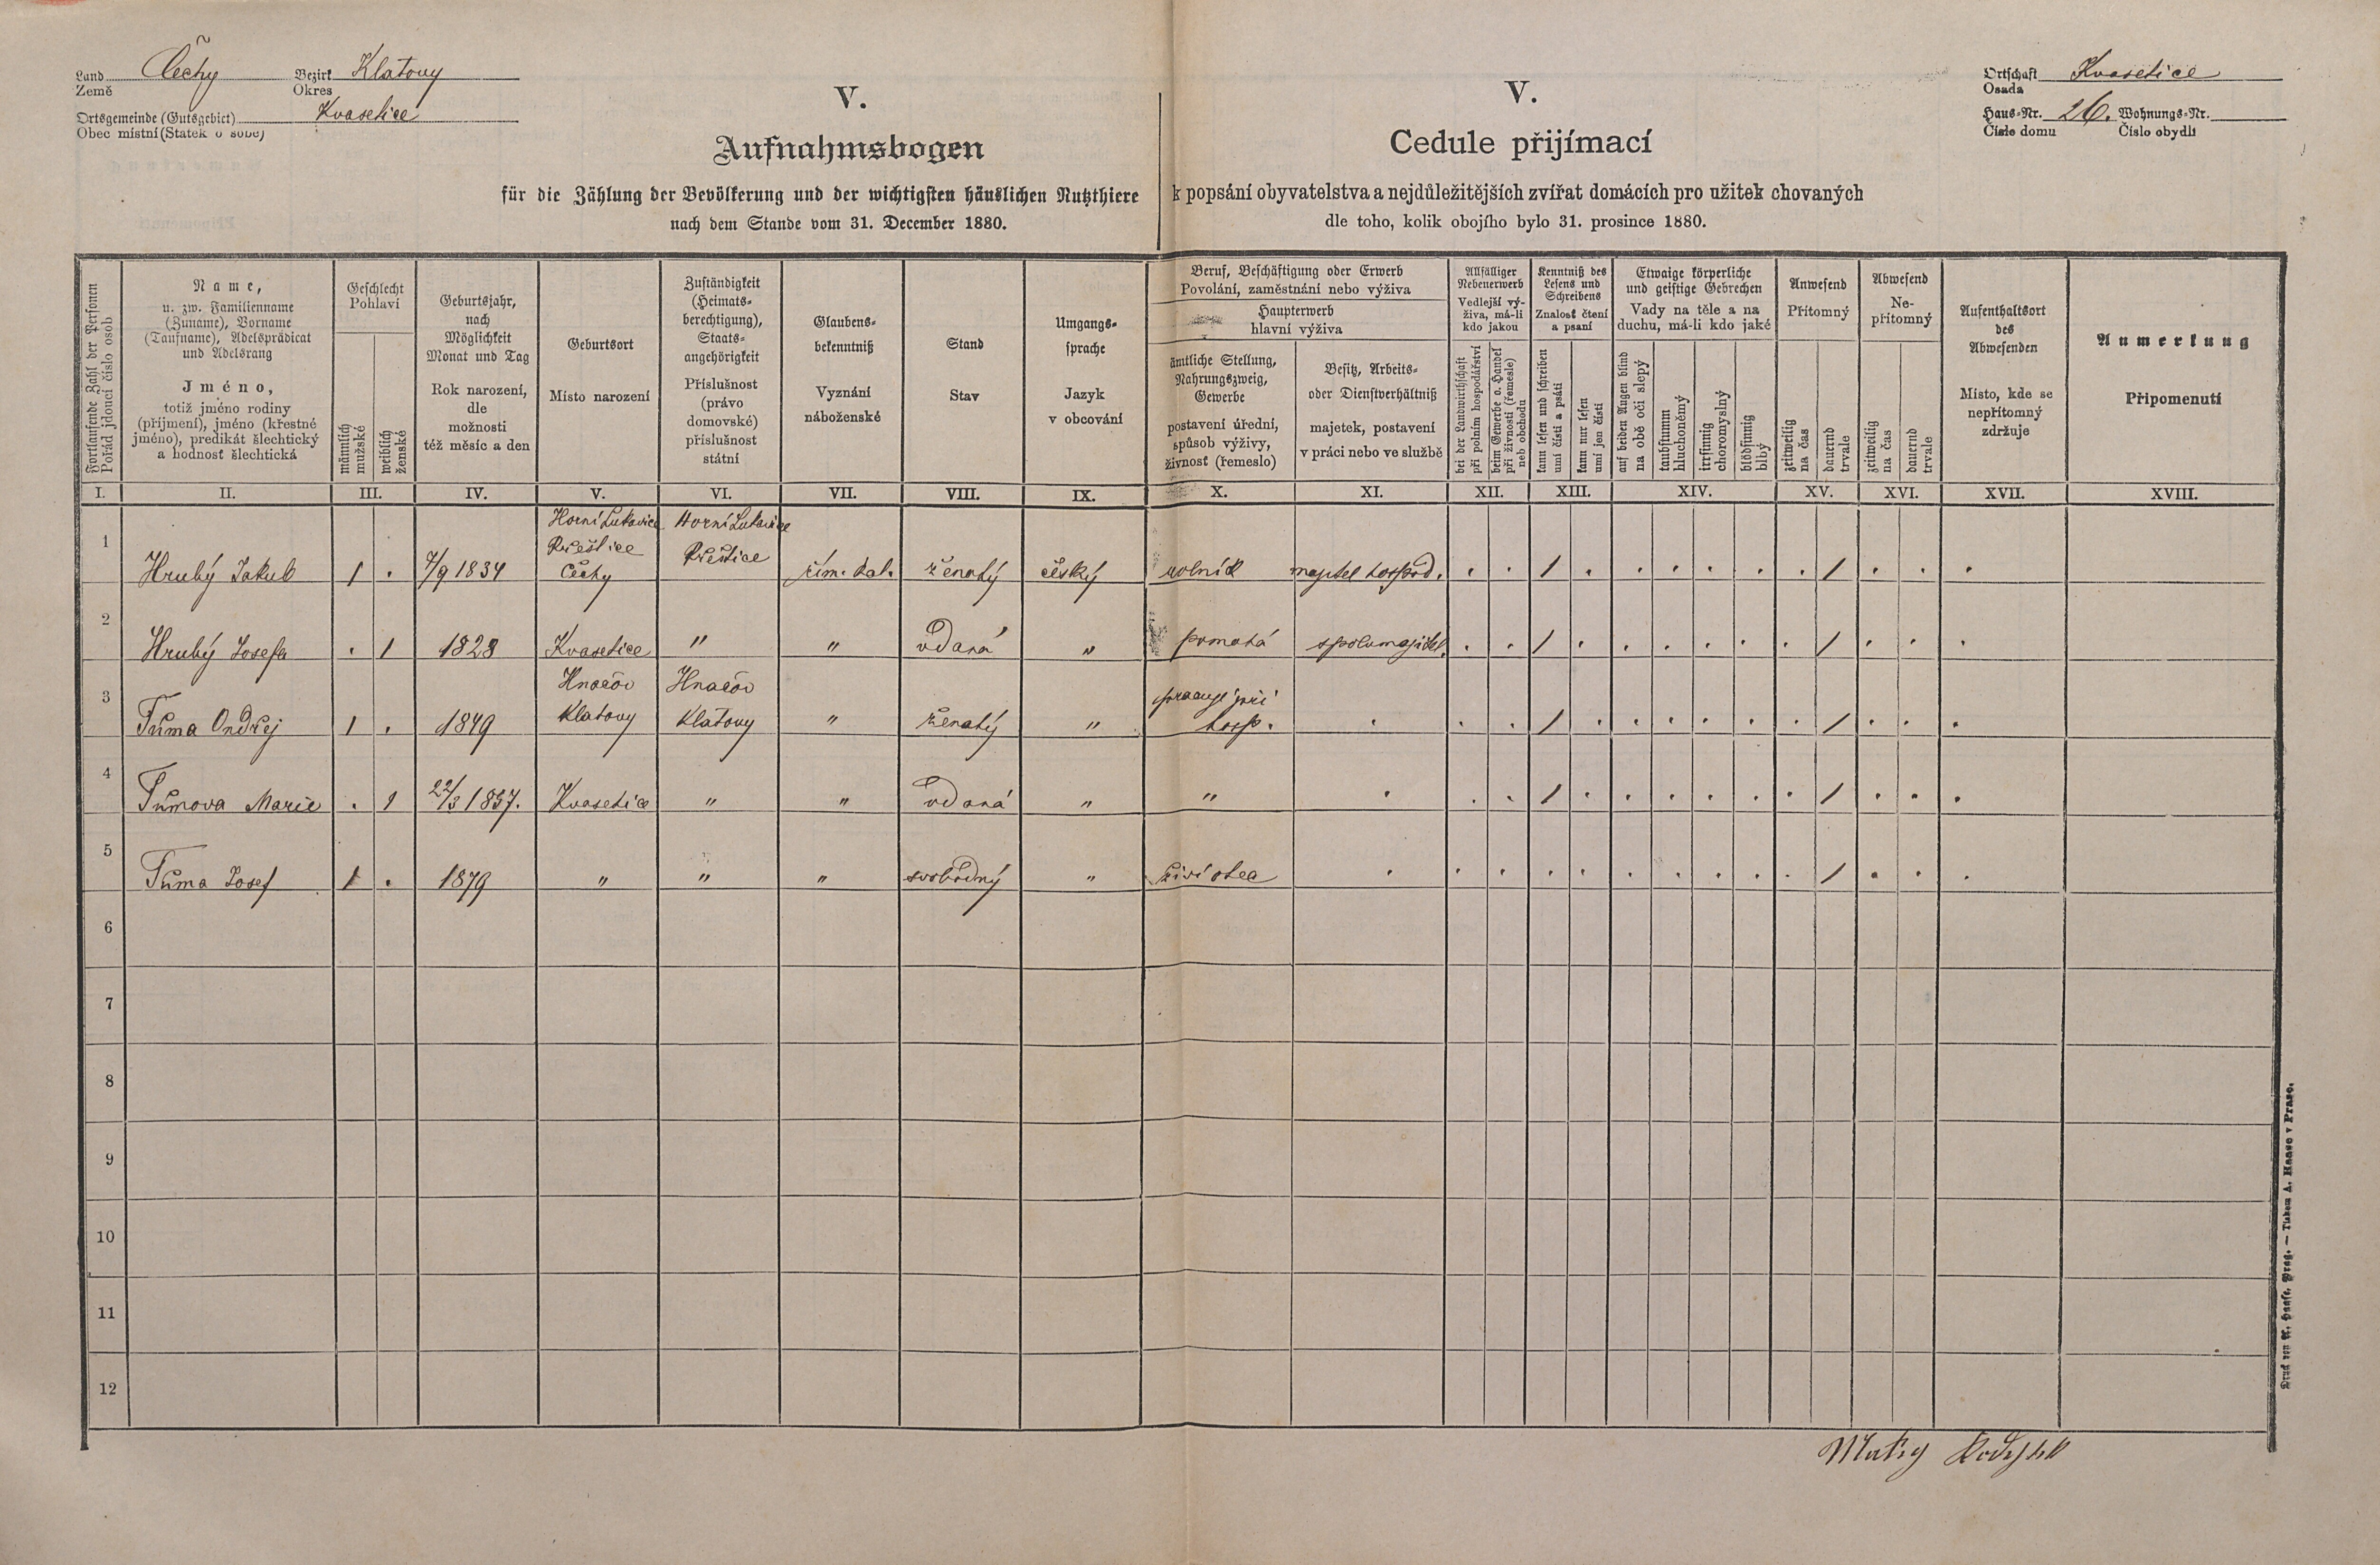 Land Čechy Bezirk Klatovy
Země Okres
Ortsgemeinde (Gutsgebiet) Kvasetice
Obec místní (Statek o sobě)
V.
Aufnahmsbogen
für die Zählung der Bevölkerung und der wichtigsten häuslichen Nutzthiere
nach dem Stande vom 31. December 1880.
V.
Cedule přijímací
k popsání obyvatelstva a nejdůležitějších zvířat domácích pro užitek chovaných
dle toho, kolik obojího bylo 31. prosince 1880.
Ortschaft Kvasetice
Osada
Haus-Nr. 26. Wohnungs-Nr.
Číslo domu Číslo obydlí
Fortlaufende Zahl der Personen
Pořád jdoucí číslo osob
Name,
u. zw. Familienname
(Zuname), Vorname
(Taufname), Adelsprädicat
und Adelsrang
Jméno,
totiž jméno rodiny
(příjmení), jméno (křestné
jméno), predikát šlechtický
a hodnost šlechtická
Geschlecht
Pohlaví
männlich
mužské
weiblich
ženské
Geburtsjahr,
nach
Möglichkeit
Monat und Tag
Rok narození,
dle
možnosti
též měsíc a den
Geburtsort
Místo narození
Zuständigkeit
(Heimats-
berechtigung),
Staats-
angehörigkeit
Příslušnost
(právo
domovské)
příslušnost
státní
Glaubens-
bekenntniß
Vyznání
náboženské
Stand
Stav
Umgangs-
sprache
Jazyk
v obcování
Beruf, Beschäftigung oder Erwerb
Povolání, zaměstnání nebo výživa
Haupterwerb
hlavní výživa
ämtliche Stellung,
Nahrungszweig,
Gewerbe
postavení úřední,
spůsob výživy,
živnost (řemeslo)
Besitz, Arbeits-
oder Dienstverhältniß
majetek, postavení
v práci nebo ve službě
Allfälliger
Nebenerwerb
Vedlejší vý-
živa, má-li
kdo jakou
bei der Landwirthschaft
při polním hospodářství
beim Gewerbe o. Handel
při živnosti (řemesle)
neb obchodu
Kenntniß des
Lesens und
Schreibens
Znalost čtení
a psaní
kann lesen und schreiben
umí čísti a psáti
kann nur lesen
umí jen čísti
Etwaige körperliche
und geistige Gebrechen
Vady na těle a na
duchu, má-li kdo jaké
auf beiden Augen blind
na obě oči slepý
taubstumm
hluchoněmý
irrsinnig
choromyslný
blödsinnig
blbý
Anwesend
Přítomný
zeitweilig
na čas
dauernd
trvale
Abwesend
Ne-
přítomný
zeitweilig
na čas
dauernd
trvale
Aufenthaltsort
des
Abwesenden
Místo, kde se
nepřítomný
zdržuje
Anmerkung
Připomenutí
I. II. III. IV. V. VI. VII. VIII. IX. X. XI. XII. XIII. XIV. XV. XVI. XVII. XVIII.
Horní Lukavice Horní Lukavice
1 Přeštice Přeštice
Hrubý Jakub 1 . 7/9 1834 Čechy řím. kat. ženatý český rolník majitel hospod. . . 1 . . . . . . 1 . . .
2
Hrubý Josefa . 1 1828 Kvasetice " " vdaná " pomahá spolumajitel. . . 1 . . . . . . 1 . . .
3 Hnačov Hnačov pracuje při
Tůma Ondřej 1 . 1849 Klatovy Klatovy " ženatý " hosp. . . . 1 . . . . . . 1 . . .
4
Tůmova Marie . 1 22/3 1857. Kvasetice " " vdaná " " . . . 1 . . . . . . 1 . . .
5
Tůma Josef 1 . 1879 " " " svobodný " živí otec . . . . . . . . . . 1 . . .
6
7
8
9
10
11
12
Druck von A. Haase, Prag. — Tiskem A. Haase v Praze.